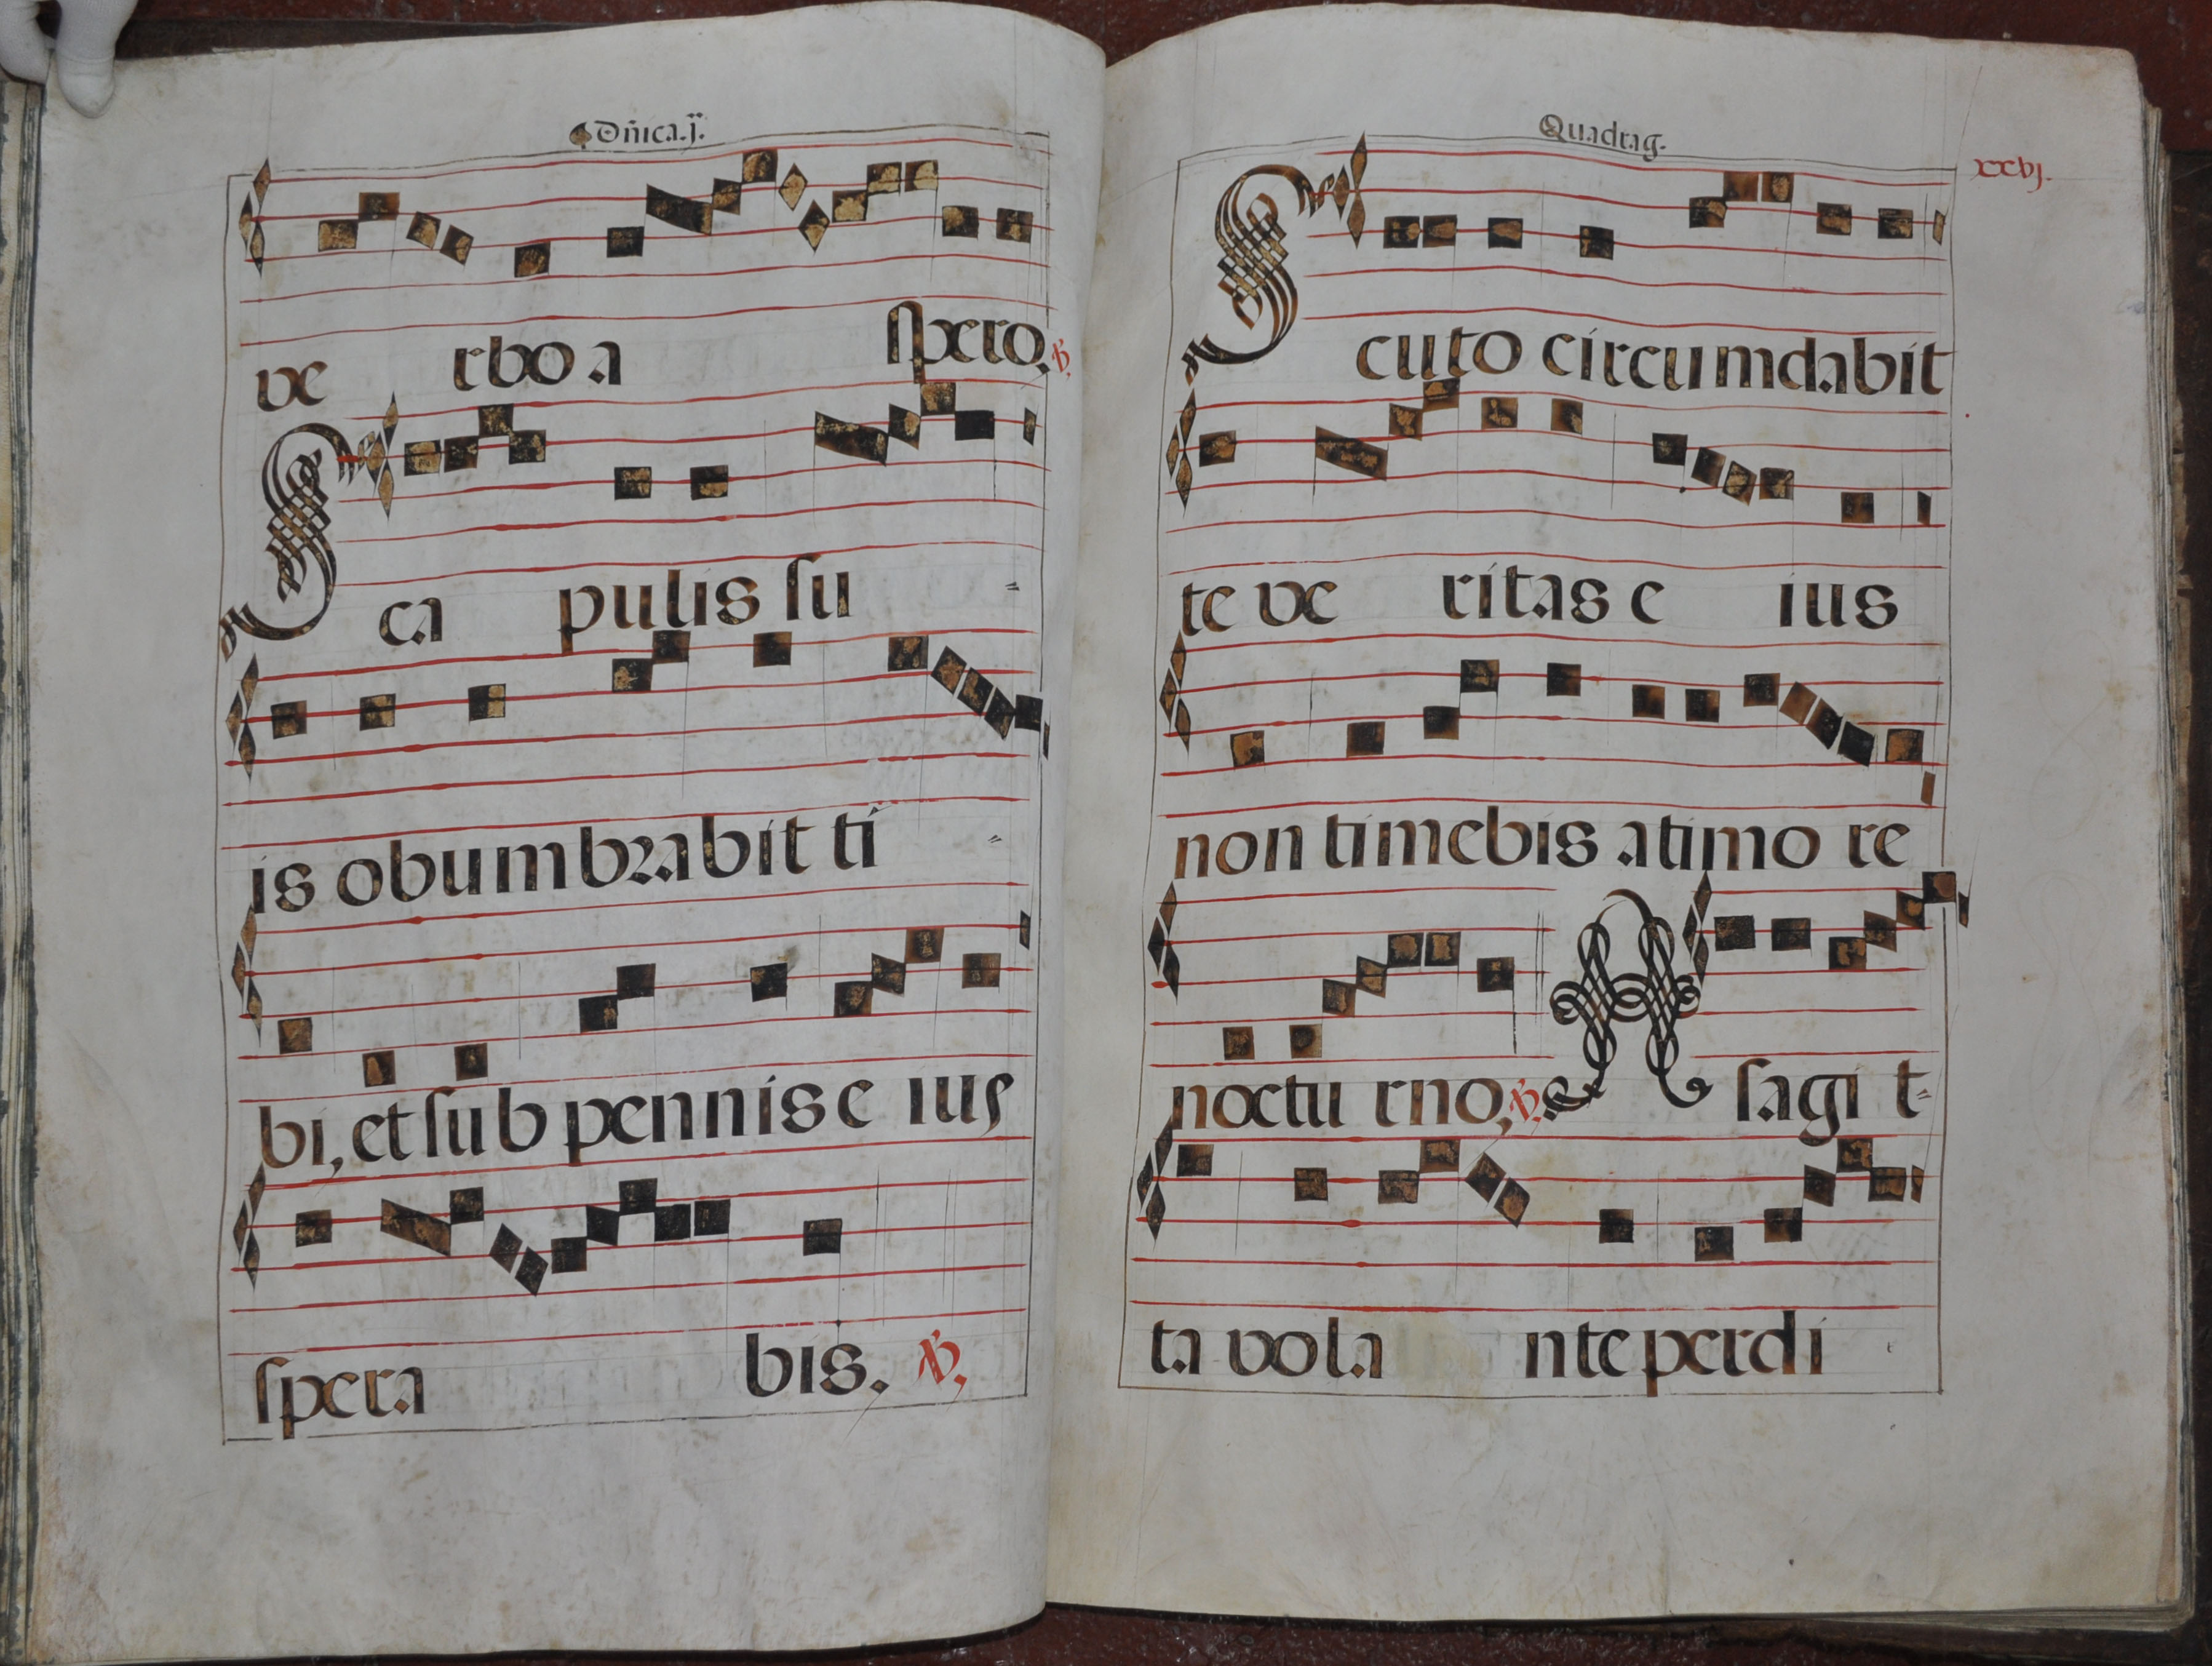 Dñica. j.
ve rbo a spero, ℣,
Sca pulis su =
is obumbrabit ti =
bi, et sub pennis e ius
spera bis. ℣,
Quadrag.
xxvj.
Scuto circumdabit
te ve ritas e ius
non timebis a timo re
noctu rno, ℣, A sagi t=
ta vola nte per di